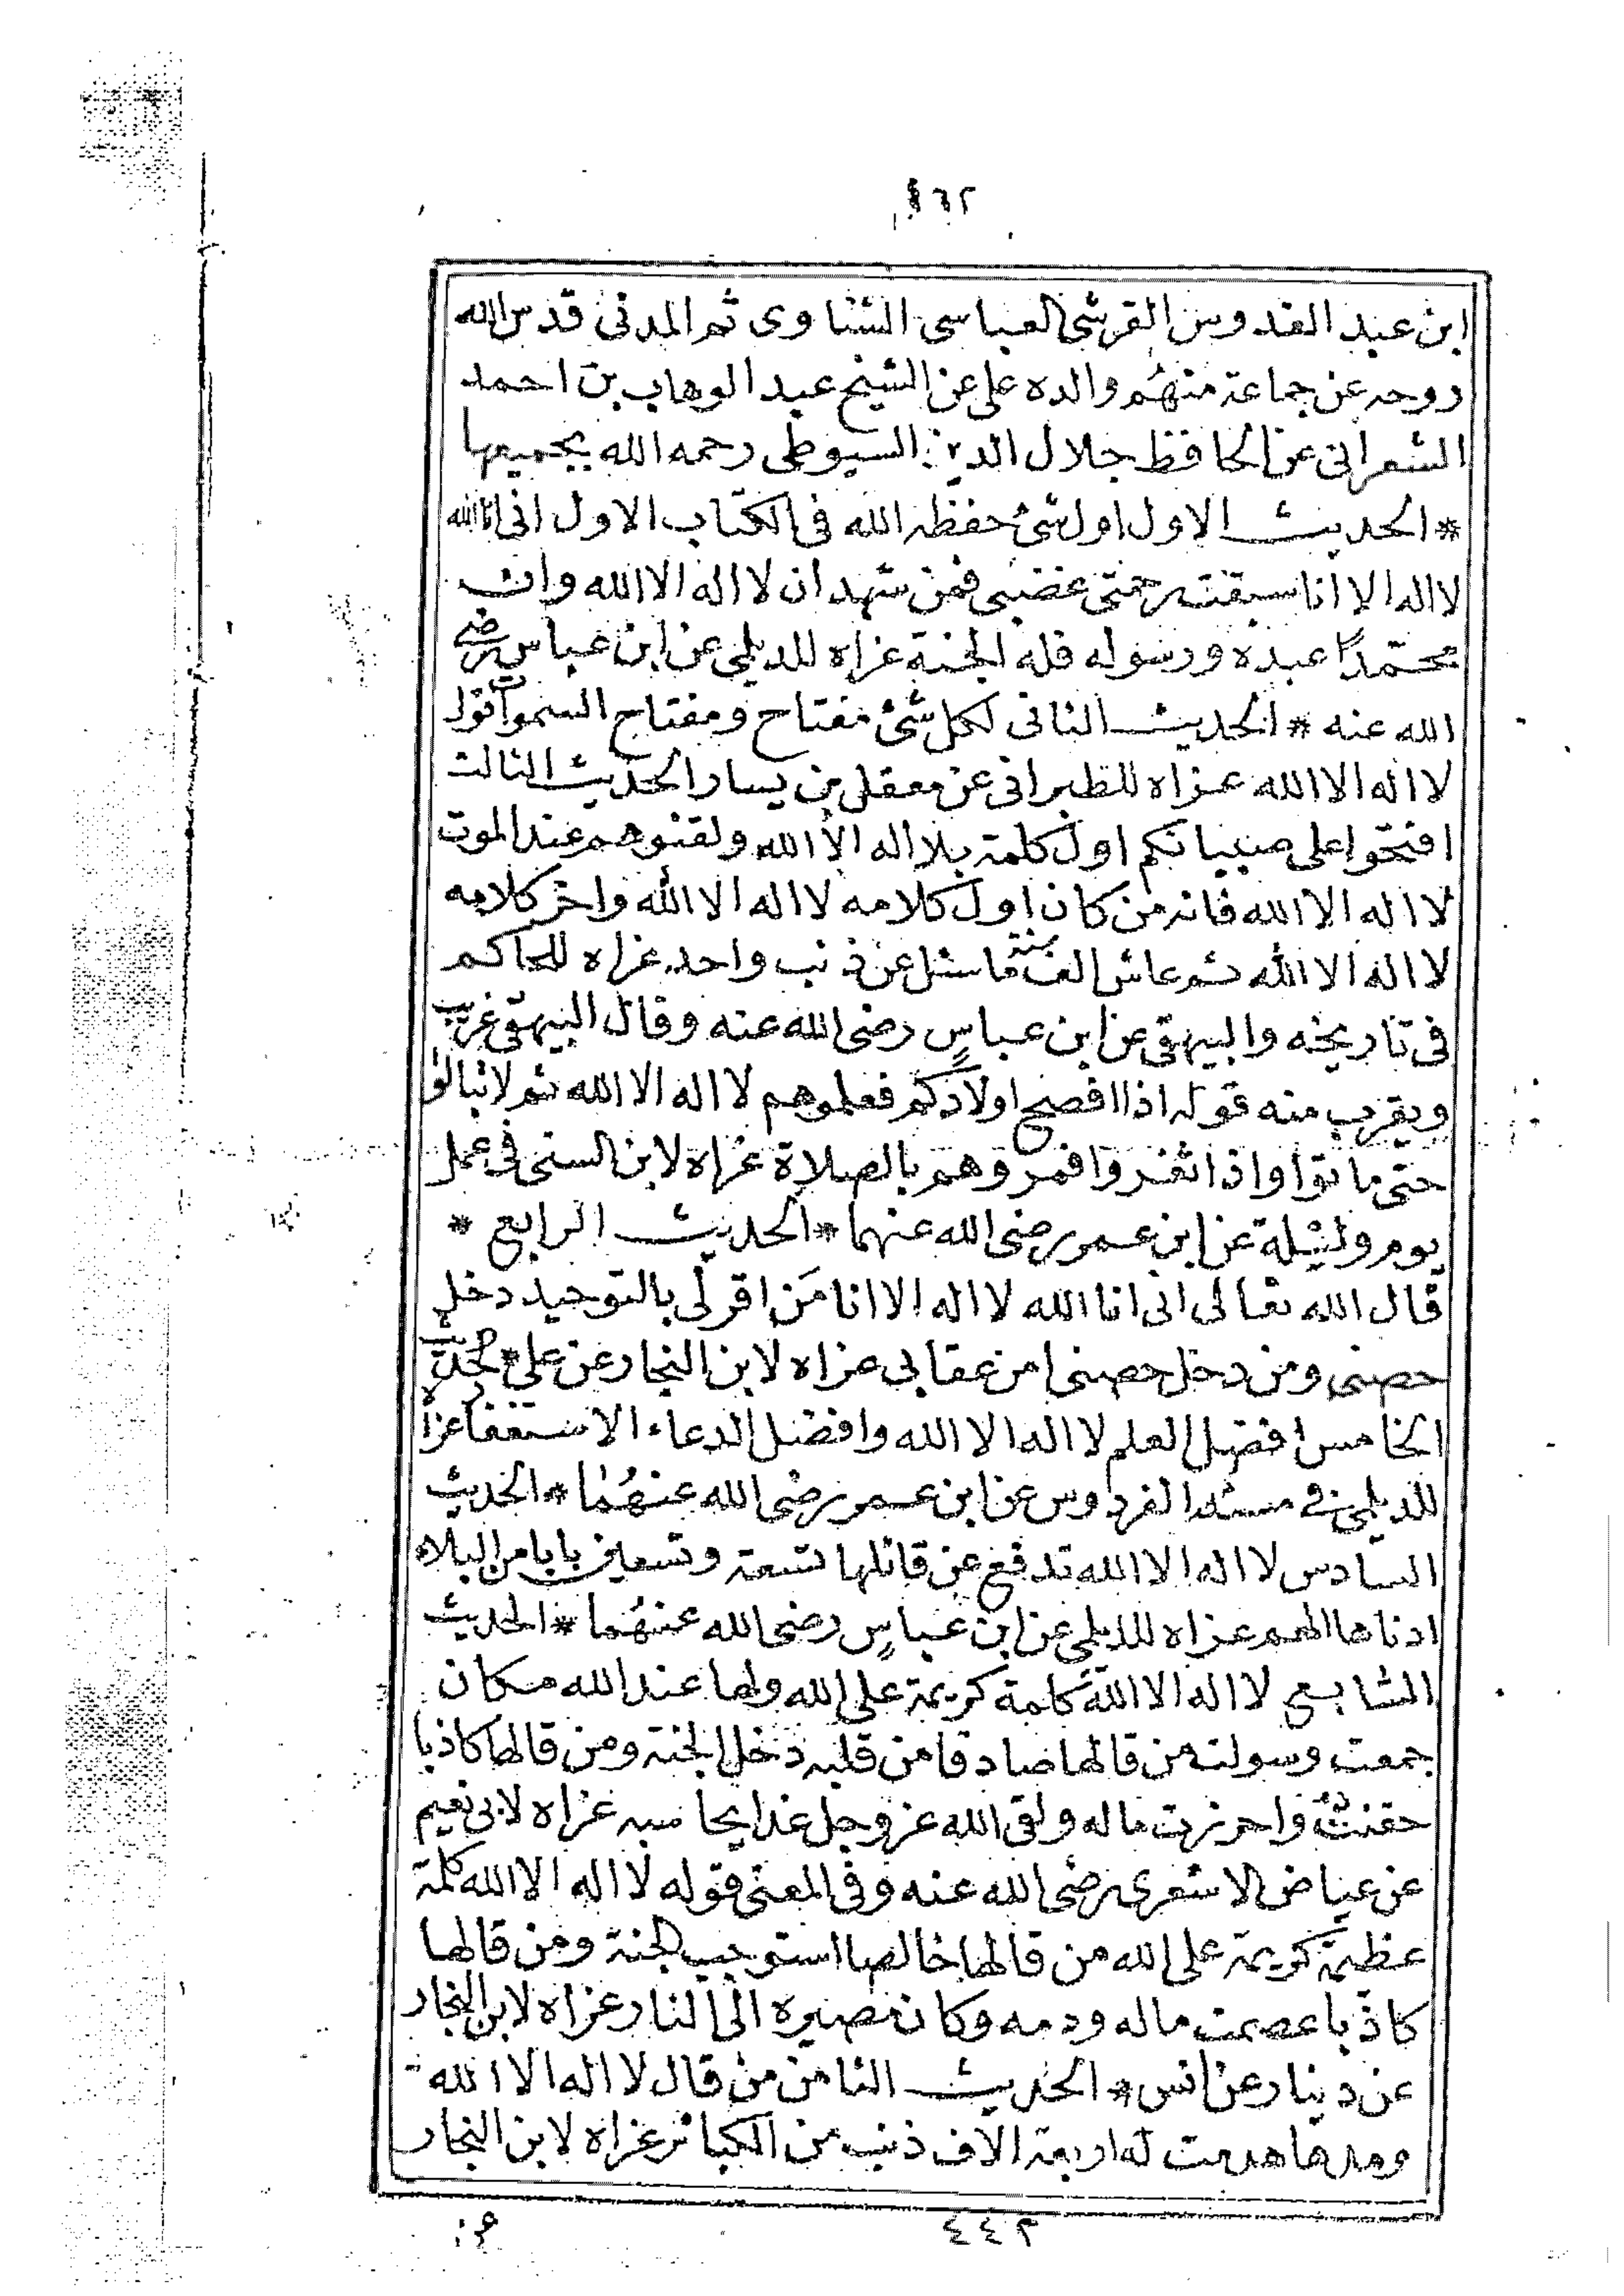 ابن عبد القدوس القرشى العباسى الشناوى ثم المدنى قدس الله
روحه عن جماعة منهم والده على عن الشيخ عبد الوهاب بن احمد
الشعرانى عن الحافظ جلال الدين السيوطى رحمه الله بجميعها
* الحديث الاول اول شئ حفظه الله فى الكتاب الاول انى انا الله
لا اله الا انا سبقت رحمتى غضبى فمن شهد ان لا اله الا الله وان
محمدا عبده ورسوله فله الجنة عزاه للديلمى عن ابن عباس رضى
الله عنه * الحديث الثانى لكل شئ مفتاح ومفتاح السموات قول
لا اله الا الله عزاه للطبرانى عن معقل بن يسار الحديث الثالث
افتحوا على صبيانكم اول كلمة بلا اله الا الله ولقنوهم عند الموت
لا اله الا الله فانه من كان اول كلامه لا اله الا الله واخر كلامه
لا اله الا الله ثم عاش الف سنة ما سئل عن ذنب واحد عزاه للحاكم
فى تاريخه والبيهقى عن ابن عباسٍ رضى الله عنه وقال البيهقى غريب
ويقرب منه قوله اذا افصح اولادكم فعلموهم لا اله الا الله ثم لا تبالوا
حتى ماتوا واذا اثغروا فمروهم بالصلاة عزاه لابن السنى فى عمل
يوم وليلة عن ابن عمر رضى الله عنهما * الحديث الرابع *
قال الله تعالى انى انا الله لا اله الا انا مَن اقر لى بالتوحيد دخل
حصنى ومن دخل حصنى امن عقابى عزاه لابن النجار عن على * الحديث
الخامس افضل العلم لا اله الا الله وافضل الدعاء الاستغفار عزاه
للديلمى فى مسند الفردوس عن ابن عمر رضى الله عنهُما * الحديث
السادس لا اله الا الله تدفع عن قائلها تسعة وتسعين بابا من البلاء
ادناها الهم عزاه للديلمى عن ابن عباسٍ رضى الله عنهُما * الحديث
السابع لا اله الا الله كلمة كريمة على الله ولها عند الله مكان
جمعت وسولت من قالها صادقا من قلبه دخل الجنة ومن قالها كاذبا
حقنت واحرزت ماله ولقى الله عز وجل غدا يحاسبه عزاه لابى نعيم
عن عياض الاشعرى رضى الله عنه وفى المعنى قوله لا اله الا الله كلمة
عظيمة كريمة على الله من قالها خالصا استوجب الجنة ومن قالها
كاذبا عصمت ماله ودمه وكان مصيره الى النار عزاه لابن النجار
عن دينار عن انس * الحديث الثامن من قال لا اله الا الله
ومدها هدمت له اربعة الاف ذنب من الكبائر عزاه لابن النجار
٤٤٢